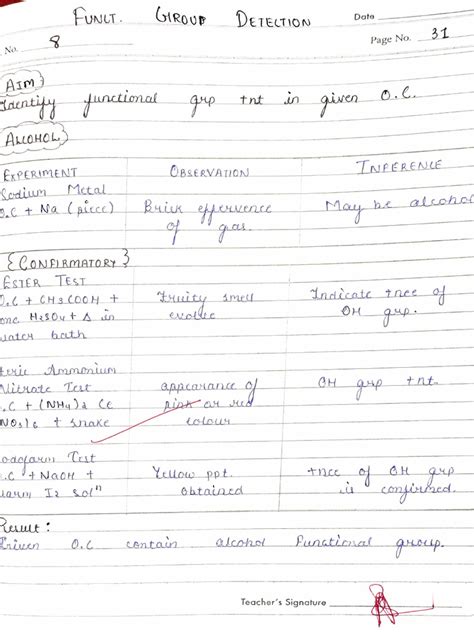 FUNCT. GROUP DETECTION
Date
No. 8
Page No. 31
AIM
Identify functional grp tnt in given O.C.
ALCOHOL
EXPERIMENT OBSERVATION INFERENCE
Sodium Metal
O.C + Na (piece) Brisk effervence May be alcohol
of gas.
{CONFIRMATORY}
ESTER TEST
O.C + CH3COOH + Fruity smell Indicate tnce of
onc H2SO4 + Δ in evolve OH grp.
water bath
Ammonium
Nitrate Test appearance of OH grp tnt.
.C + (NH4)2 Ce pink or red
NO3)6 + shake colour
odoform Test
.C + NaOH + Yellow ppt. tnce of OH grp
warm I2 solⁿ obtained is confirmed.
Result :
Given O.C contain alcohol Functional group.
Teacher's Signature